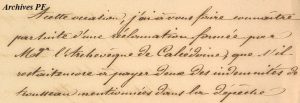 Archives PF
A cette occasion, j'ai à vous faire connaître
par suite d'une réclamation formée par
Mgr. l'Archevêque de Calcédoine, que s'il
restait encore à payer deux des indemnités de
trousseau mentionnées dans la dépêche